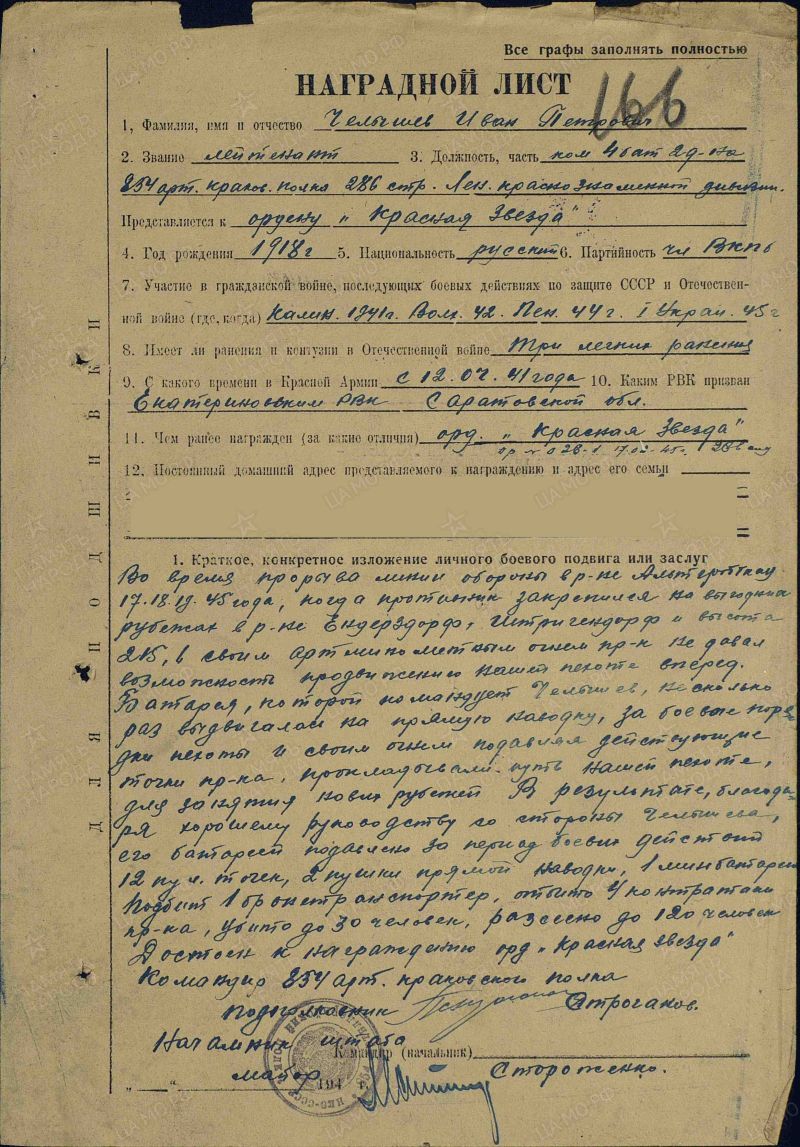 Все графы заполнять полностью
НАГРАДНОЙ ЛИСТ 166
1, Фамилия, имя и отчество Челышев Иван Петрович
2. Звание лейтенант 3. Должность, часть ком 4 бат 2 д-на
854 арт. краков. полка 286 стр. Лен. краснознаменной дивизии.
Представляется к ордену „Красная Звезда"
4. Год рождения 1918 г 5. Национальность русский 6. Партийность чл ВКПб
7. Участие в гражданской войне, последующих боевых действиях по защите СССР и Отечествен-
ной войне (где, когда) Калин. 1941г. Волх. 42. Лен. 44 г. I Украи. 45 г
8. Имеет ли ранения и контузии в Отечественной войне три легких ранения
9. С какого времени в Красной Армии с 12.07.41 года 10. Каким РВК призван
Екатериновским РВК Саратовской обл.
11. Чем ранее награжден (за какие отличия) орд. „Красная Звезда"
17.02.45г. 286
12. Постоянный домашний адрес представляемого к награждению и адрес его семьи
ДЛЯ ПОДШИВКИ
1. Краткое, конкретное изложение личного боевого подвига или заслуг
Во время прорыва линии обороны в р-не
17.18.19. 45 года, когда противник закрепился на выгодных
рубежах в р-не Ендерздорф, Штригендорф и высота
215, и своим артминометным огнем пр-к не давал
возможность продвижению нашей пехоте вперед.
Батарея, которой командует Челышев, несколько
раз выдвигалась на прямую наводку, за боевые поря-
дки пехоты и своим огнем подавляя действующие
точки пр-ка, прокладывали путь нашей пехоте,
для занятия новых рубежей В результате, благода-
ря хорошему руководству со стороны Челышева,
его батареей подавлено за период боевых действий
12 пул. точек, 2 пушки прямой наводки, 1 минбатарея
подбит 1 бронетранспортер, отбито 4 контратаки
пр-ка, убито до 30 человек, рассеено до 120 человек
Достоен к награждению орд „Красная звезда"
Командир 854 арт. краковского полка
подполковник Строганов.
Начальник штаба
Командир (начальник)
майор Стороженко.
„ " 194 г.